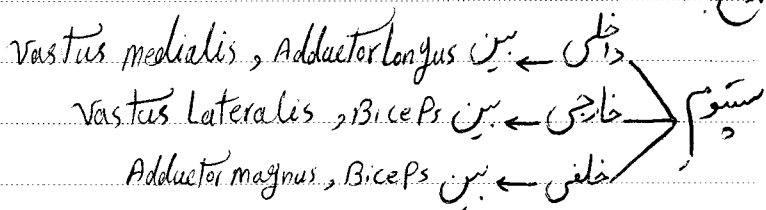 داخلی ← بین Vastus medialis , Adductor Longus
سپتوم خارجی ← بین Vastus Lateralis , Biceps
خلفی ← بین Adductor magnus , Biceps